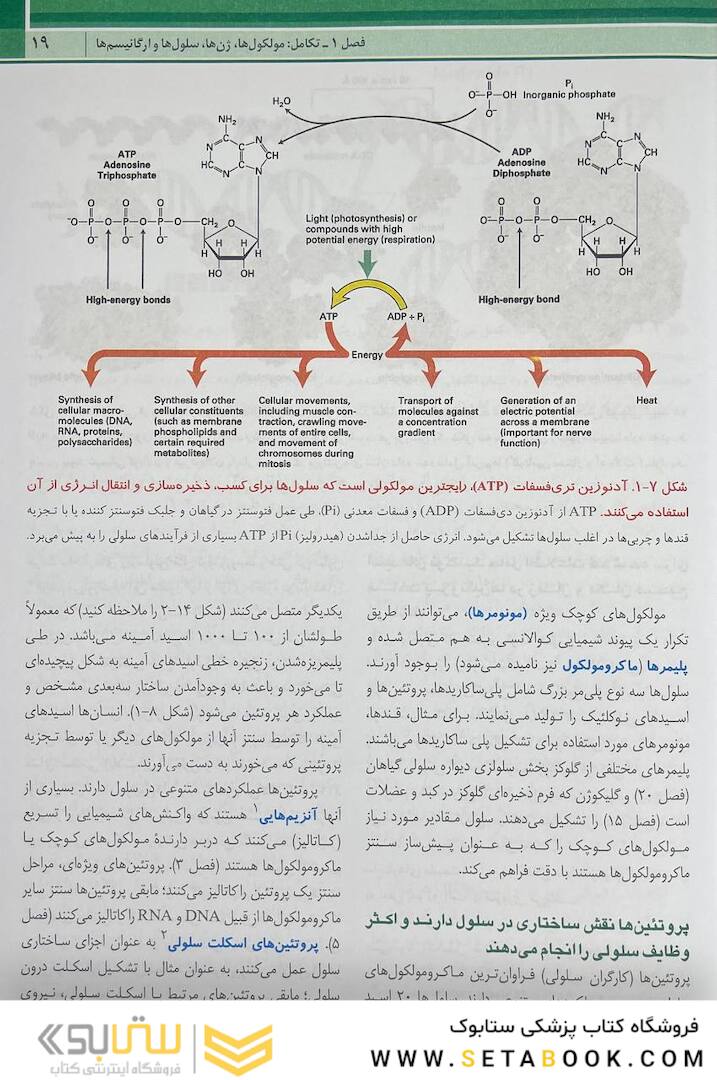 فصل ۱ ـ تکامل: مولکول‌ها، ژن‌ها، سلول‌ها و ارگانیسم‌ها
۱۹
H₂O
Pᵢ
Inorganic phosphate
ATP
Adenosine
Triphosphate
ADP
Adenosine
Diphosphate
High-energy bonds
High-energy bond
Light (photosynthesis) or
compounds with high
potential energy (respiration)
ATP
ADP + Pᵢ
Energy
Synthesis of
cellular macro-
molecules (DNA,
RNA, proteins,
polysaccharides)
Synthesis of other
cellular constituents
(such as membrane
phospholipids and
certain required
metabolites)
Cellular movements,
including muscle con-
traction, crawling move-
ments of entire cells,
and movement of
chromosomes during
mitosis
Transport of
molecules against
a concentration
gradient
Generation of an
electric potential
across a membrane
(important for nerve
function)
Heat
شکل ۷-۱. آدنوزین تری‌فسفات (ATP)، رایجترین مولکولی است که سلول‌ها برای کسب، ذخیره‌سازی و انتقال انرژی از آن
استفاده می‌کنند. ATP از آدنوزین دی‌فسفات (ADP) و فسفات معدنی (Pi)، طی عمل فوتسنتز در گیاهان و جلبک فتوسنتز کننده یا با تجزیه
قندها و چربی‌ها در اغلب سلول‌ها تشکیل می‌شود. انرژی حاصل از جداشدن (هیدرولیز) Pi از ATP بسیاری از فرآیندهای سلولی را به پیش می‌برد.
مولکول‌های کوچک ویژه (مونومرها)، می‌توانند از طریق
تکرار یک پیوند شیمیایی کوالانسی به هم متصل شده و
پلیمرها (ماکرومولکول نیز نامیده می‌شود) را بوجود آورند.
سلول‌ها سه نوع پلی‌مر بزرگ شامل پلی‌ساکاریدها، پروتئین‌ها و
اسیدهای نوکلئیک را تولید می‌نمایند. برای مثال، قندها،
مونومرهای مورد استفاده برای تشکیل پلی ساکاریدها می‌باشند.
پلیمرهای مختلفی از گلوکز بخش سلولزی دیواره سلولی گیاهان
(فصل ۲۰) و گلیکوژن که فرم ذخیره‌ای گلوکز در کبد و عضلات
است (فصل ۱۵) را تشکیل می‌دهند. سلول مقادیر مورد نیاز
مولکول‌های کوچک را که به عنوان پیش‌ساز سنتز
ماکرومولکول‌ها هستند با دقت فراهم می‌کند.
پروتئین‌ها نقش ساختاری در سلول دارند و اکثر
وظایف سلولی را انجام می‌دهند
پروتئین‌ها (کارگران سلولی) فراوان‌ترین ماکرومولکول‌های
یکدیگر متصل می‌کنند (شکل ۱۴-۲ را ملاحظه کنید) که معمولاً
طولشان از ۱۰۰ تا ۱۰۰۰ اسید آمینه می‌باشد. در طی
پلیمریزه‌شدن، زنجیره خطی اسیدهای آمینه به شکل پیچیده‌ای
تا می‌خورد و باعث به وجودآمدن ساختار سه‌بعدی مشخص و
عملکرد هر پروتئین می‌شود (شکل ۸-۱). انسان‌ها اسیدهای
آمینه را توسط سنتز آنها از مولکول‌های دیگر یا توسط تجزیه
پروتئینی که می‌خورند به دست می‌آورند.
پروتئین‌ها عملکردهای متنوعی در سلول دارند. بسیاری از
آنها آنزیم‌هایی۱ هستند که واکنش‌های شیمیایی را تسریع
(کاتالیز) می‌کنند که دربر دارندهٔ مولکول‌های کوچک یا
ماکرومولکول‌ها هستند (فصل ۳). پروتئین‌های ویژه‌ای، مراحل
سنتز یک پروتئین را کاتالیز می‌کنند؛ مابقی پروتئین‌ها سنتز سایر
ماکرومولکول‌ها از قبیل DNA و RNA را کاتالیز می‌کنند (فصل
۵). پروتئین‌های اسکلت سلولی۲ به عنوان اجزای ساختاری
سلول عمل می‌کنند، به عنوان مثال با تشکیل اسکلت درون
سلولی؛ مابقی پروتئین‌های مرتبط با اسکلت سلولی، نیروی
فروشگاه کتاب پزشکی ستابوک
WWW.SETABOOK.COM
ستابوک
فروشگاه اینترنتی کتاب